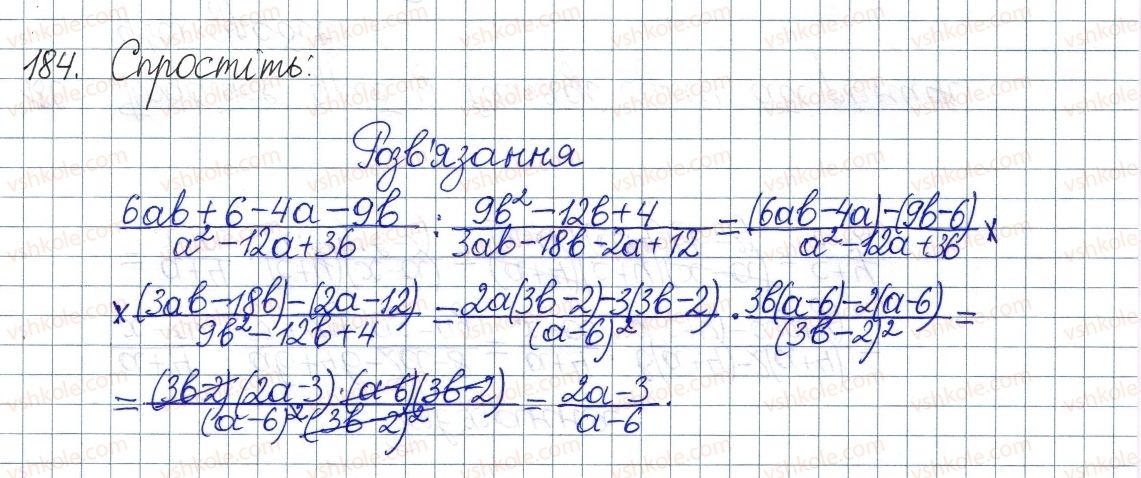 184. Спростіть:
Розв'язання
(6ab+6-4a-9b)/(a²-12a+36) : (9b²-12b+4)/(3ab-18b-2a+12) = ((6ab-4a)-(9b-6))/(a²-12a+36) ×
× ((3ab-18b)-(2a-12))/(9b²-12b+4) = (2a(3b-2)-3(3b-2))/(a-6)² · (3b(a-6)-2(a-6))/(3b-2)² =
= ((3b-2)(2a-3)·(a-6)(3b-2))/((a-6)²(3b-2)²) = (2a-3)/(a-6).